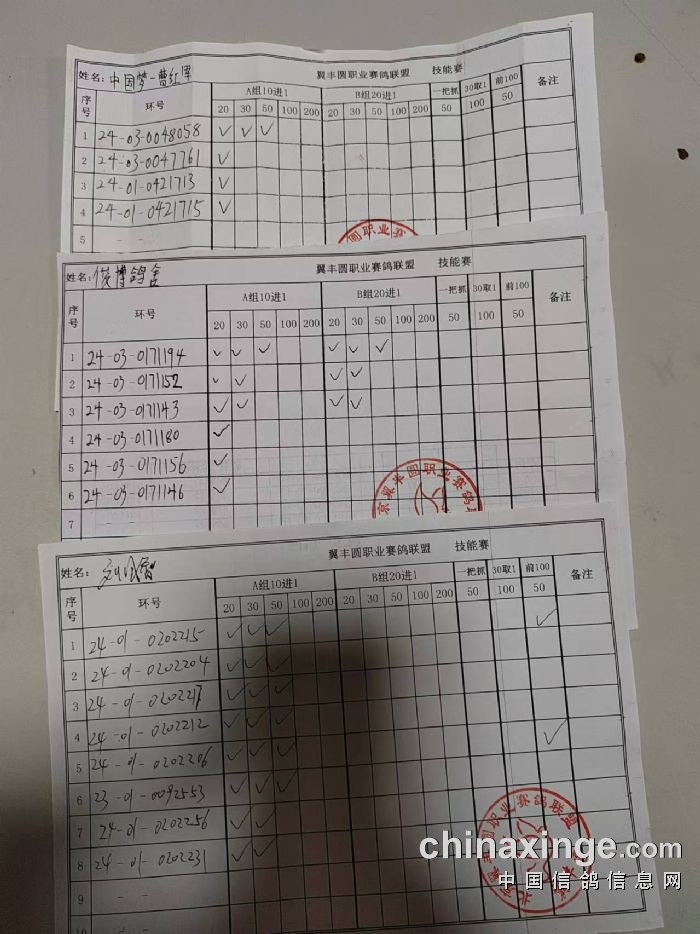 翼丰圆职业赛鸽联盟 技能赛
姓名: 中国梦-曹红军
序号 环号 A组10进1 B组20进1 一把抓 30取1 前100 备注
20 30 50 100 200 20 30 50 100 200 50 100 50
1 24-03-0048058 ✓ ✓ ✓
2 24-03-0047761 ✓
3 24-01-0421713 ✓
4 24-01-0421715 ✓
5
翼丰圆职业赛鸽联盟 技能赛
姓名: 俊博鸽舍
序号 环号 A组10进1 B组20进1 一把抓 30取1 前100 备注
20 30 50 100 200 20 30 50 100 200 50 100 50
1 24-03-0171194 ✓ ✓ ✓ ✓ ✓ ✓
2 24-03-0171152 ✓ ✓ ✓ ✓
3 24-03-0171143 ✓ ✓ ✓ ✓
4 24-03-0171180 ✓
5 24-03-0171156 ✓
6 24-03-0171146 ✓
7
京翼丰圆职业赛鸽
翼丰圆职业赛鸽联盟 技能赛
姓名:
序号 环号 A组10进1 B组20进1 一把抓 30取1 前100 备注
20 30 50 100 200 20 30 50 100 200 50 100 50
1 24-01-0202215 ✓ ✓ ✓ ✓
2 24-01-0202204 ✓ ✓ ✓
3 24-01-0202217 ✓ ✓ ✓
4 24-01-0202212 ✓ ✓ ✓ ✓
5 24-01-0202206 ✓ ✓ ✓
6 23-01-0092553 ✓ ✓ ✓
7 24-01-0202256 ✓ ✓ ✓
8 24-01-0202231 ✓ ✓ ✓
9
10
圆职业赛鸽联盟
chinaxinge.com
中国信鸽信息网